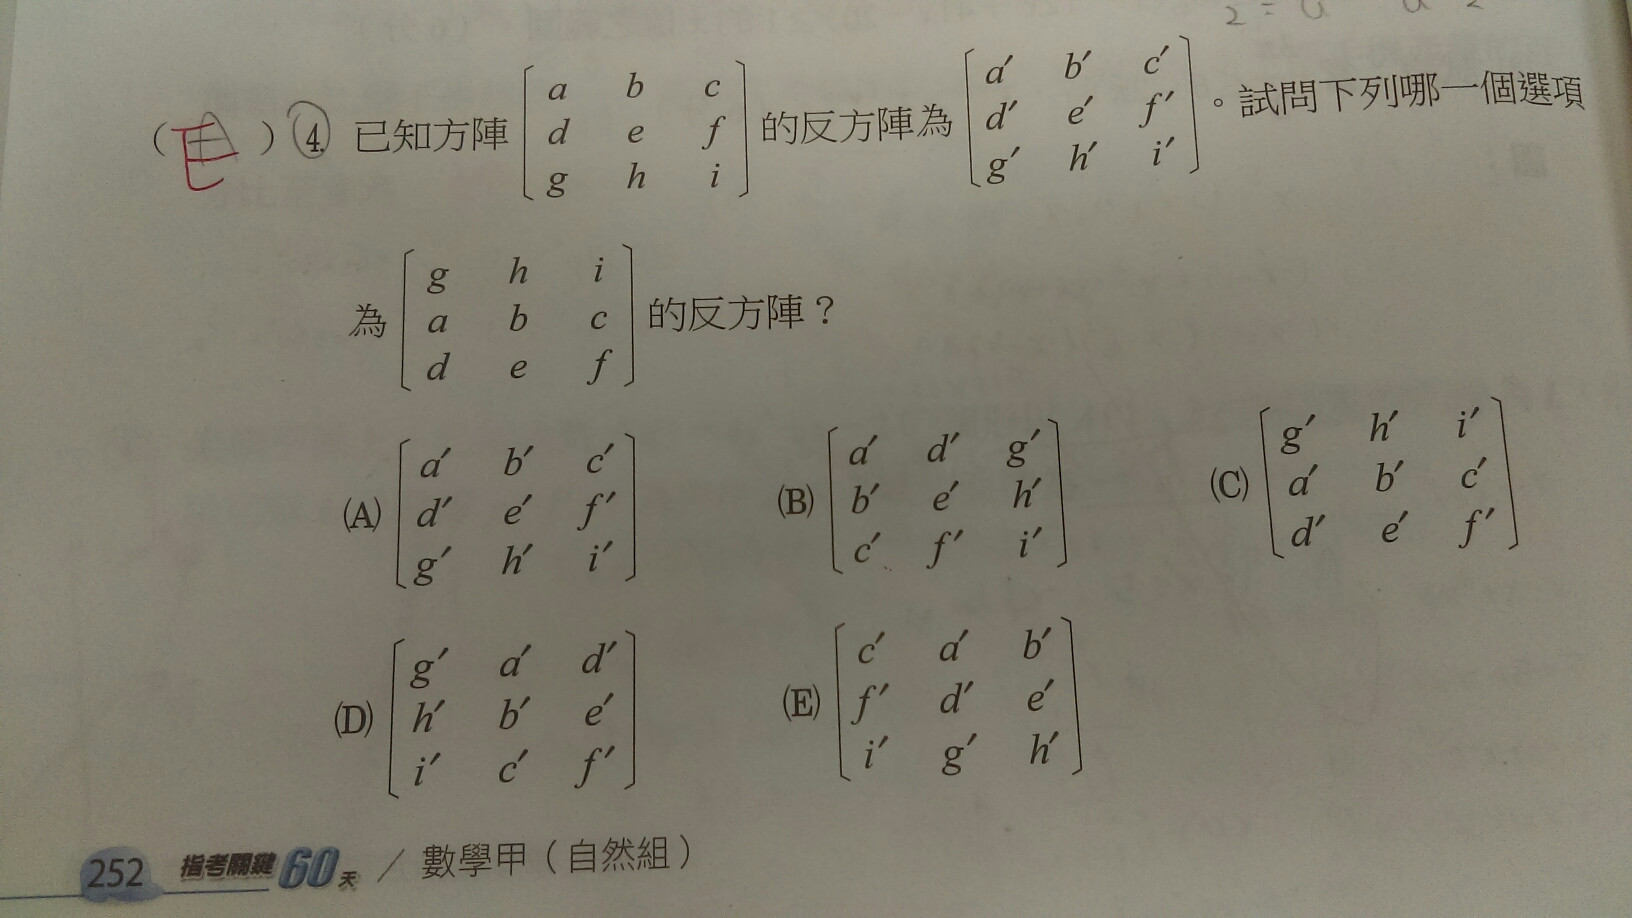 ( E ) 4. 已知方陣 [ a b c ; d e f ; g h i ] 的反方陣為 [ a′ b′ c′ ; d′ e′ f′ ; g′ h′ i′ ] 。試問下列哪一個選項
為 [ g h i ; a b c ; d e f ] 的反方陣？
(A) [ a′ b′ c′ ; d′ e′ f′ ; g′ h′ i′ ] (B) [ a′ d′ g′ ; b′ e′ h′ ; c′ f′ i′ ] (C) [ g′ h′ i′ ; a′ b′ c′ ; d′ e′ f′ ]
(D) [ g′ a′ d′ ; h′ b′ e′ ; i′ c′ f′ ] (E) [ c′ a′ b′ ; f′ d′ e′ ; i′ g′ h′ ]
252 指考關鍵60天 / 數學甲（自然組）